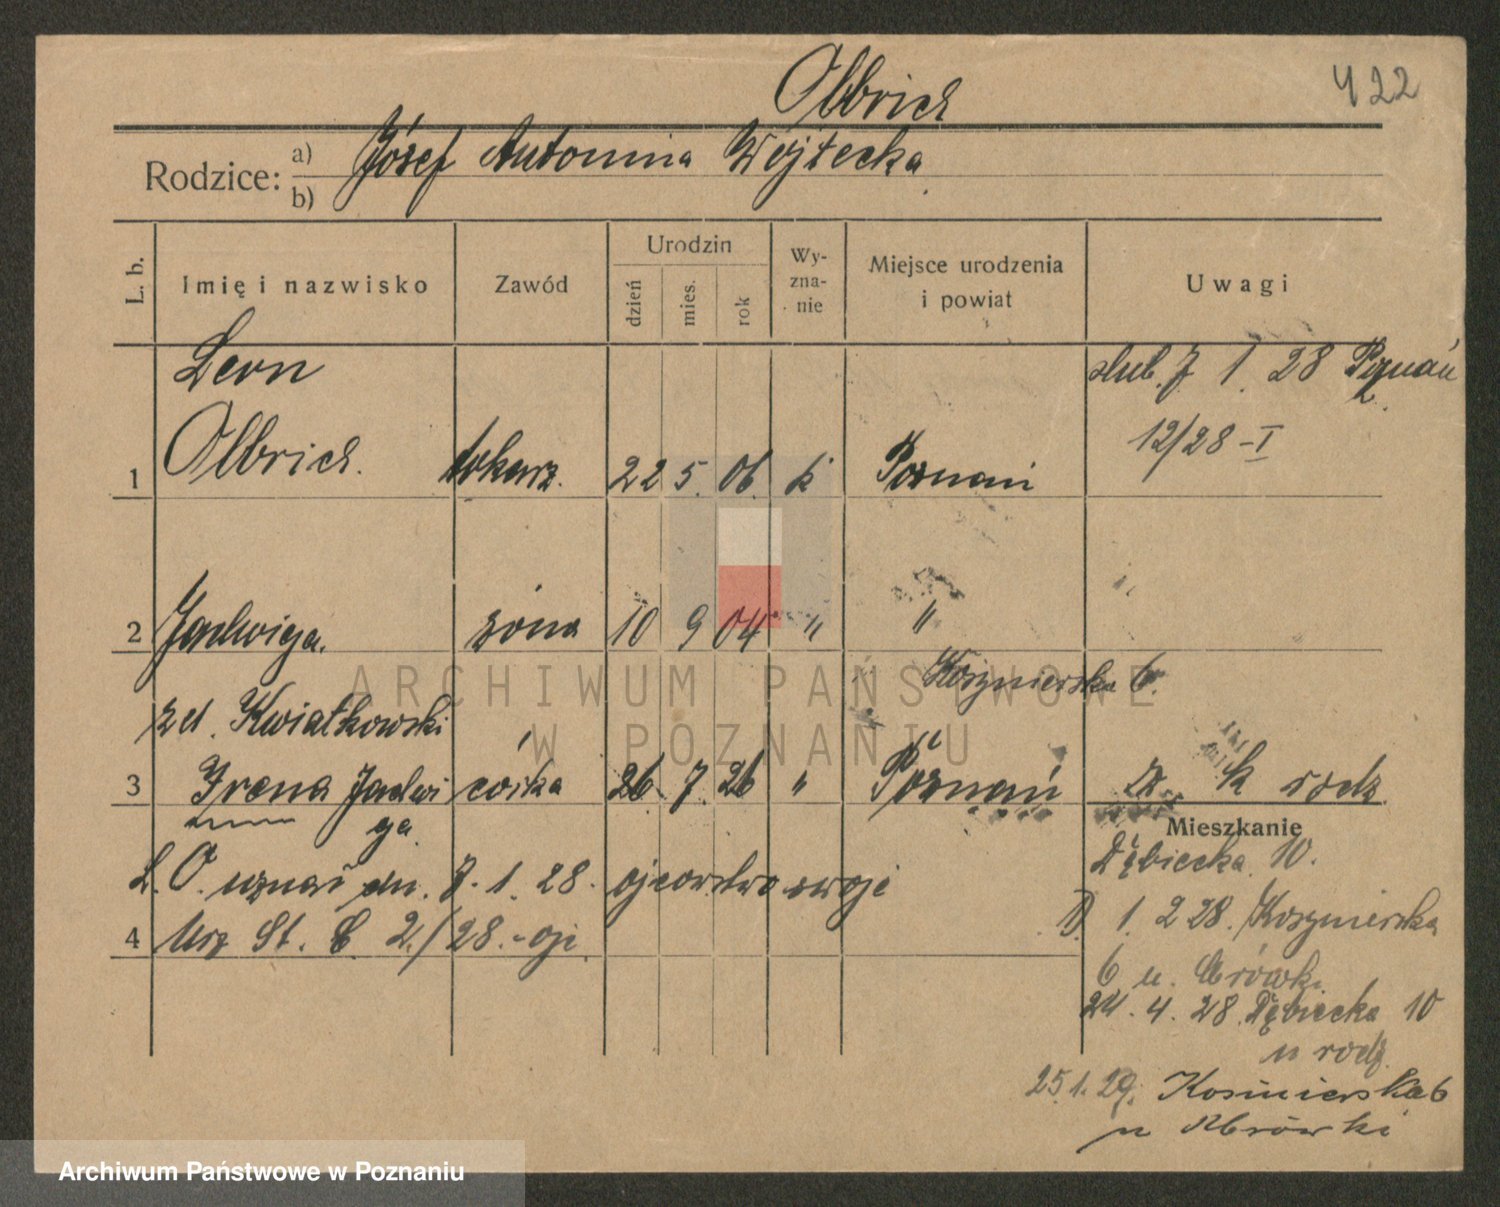 422
Olbrich
Rodzice: a) Józef Antonina Wojtecka
b)
L. b. Imię i nazwisko Zawód Urodzin dzień mies. rok Wy-zna-nie Miejsce urodzenia i powiat Uwagi
Leon ślub. 7 1. 28 Poznań
12/28-I
1 Olbrich. tokarz. 22 5. 06. k Poznań
2 Jadwiga. żona 10 9 04 " "
Koszmierska 6.
zd. Kwiatkowski
3 Irena Jadwi córka 26. 7. 26 " Poznań k rodz.
ga.
Mieszkanie
Dębiecka 10.
L. O. uznał dn. 7. 1. 28. ojcowstwo swoje
4 Urz St. C 2./28.- oji.
D. 1. 2 28. Koszmierska
6 u. Mrówki
24. 4. 28. Dębiecka 10
u rodz.
25.1.29. Kosmierska 6
u Mrówki
ARCHIWUM PAŃSTWOWE
W POZNANIU
Archiwum Państwowe w Poznaniu